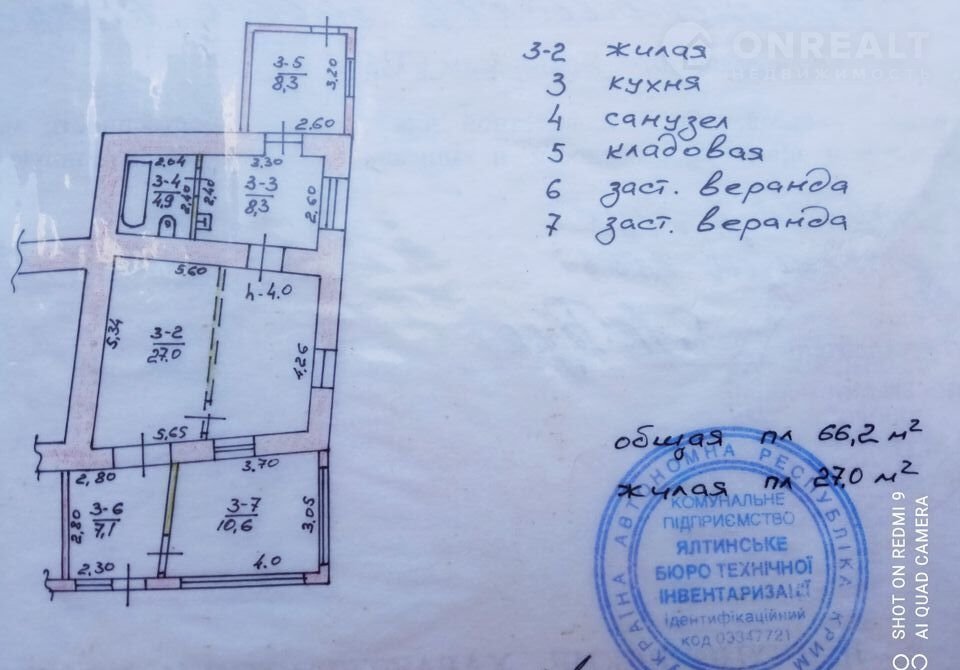 ONREALT
НЕДВИЖИМОСТЬ
3-2 жилая
3 кухня
4 санузел
5 кладовая
6 заст. веранда
7 заст. веранда
3-5
8,3
3,20
2.60
2,04
3,30
3-4
4,9
2,40
2,40
3-3
8,3
2,60
5,60
h-4.0
5,34
3-2
27.0
4,26
5,65
3,70
2,80
3-6
7,1
2,80
2,30
3-7
10,6
3,05
4.0
общая пл 66,2 м²
жилая пл 27,0 м²
УКРАЇНА АВТОНОМНА РЕСПУБЛІКА КРИМ
КОМУНАЛЬНЕ
ПІДПРИЄМСТВО
ЯЛТИНСЬКЕ
БЮРО ТЕХНІЧНОЇ
ІНВЕНТАРИЗАЦІЇ
ідентифікаційний
код 03347721
SHOT ON REDMI 9
AI QUAD CAMERA